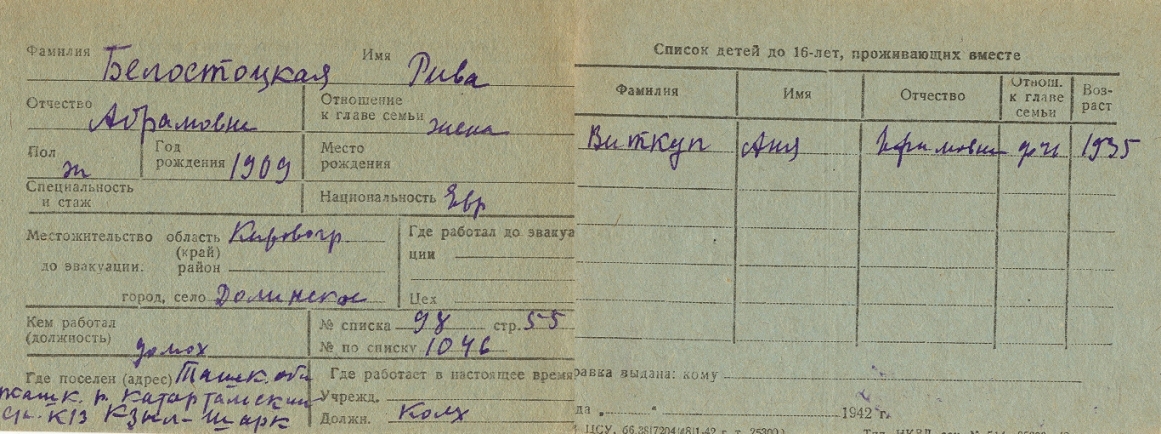 Фамилия Белостоцкая Имя Рива
Отчество Абрамовна Отношение к главе семьи жена
Пол ж Год рождения 1909 Место рождения
Специальность и стаж Национальность Евр
Местожительство область (край) Кировогр Где работал до эвакуа
до эвакуации: район ции
город, село Долинское Цех
Кем работал (должность) домох № списка 98 стр. 55
№ по списку 1046
Где поселен (адрес) Ташк. обл Где работает в настоящее время
р. Катартальский Учрежд.
К/З Кзыл-Шарк Должн. Колх
Список детей до 16-лет, проживающих вместе
Фамилия Имя Отчество Отнош. к главе семьи Воз-раст
Виткуп Аня дочь 1935
равка выдана: кому
да 1942 г.